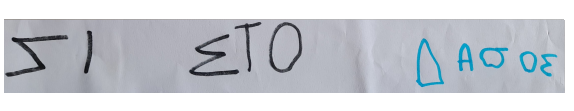 ΣΤΟ ΔΑσΟΣ